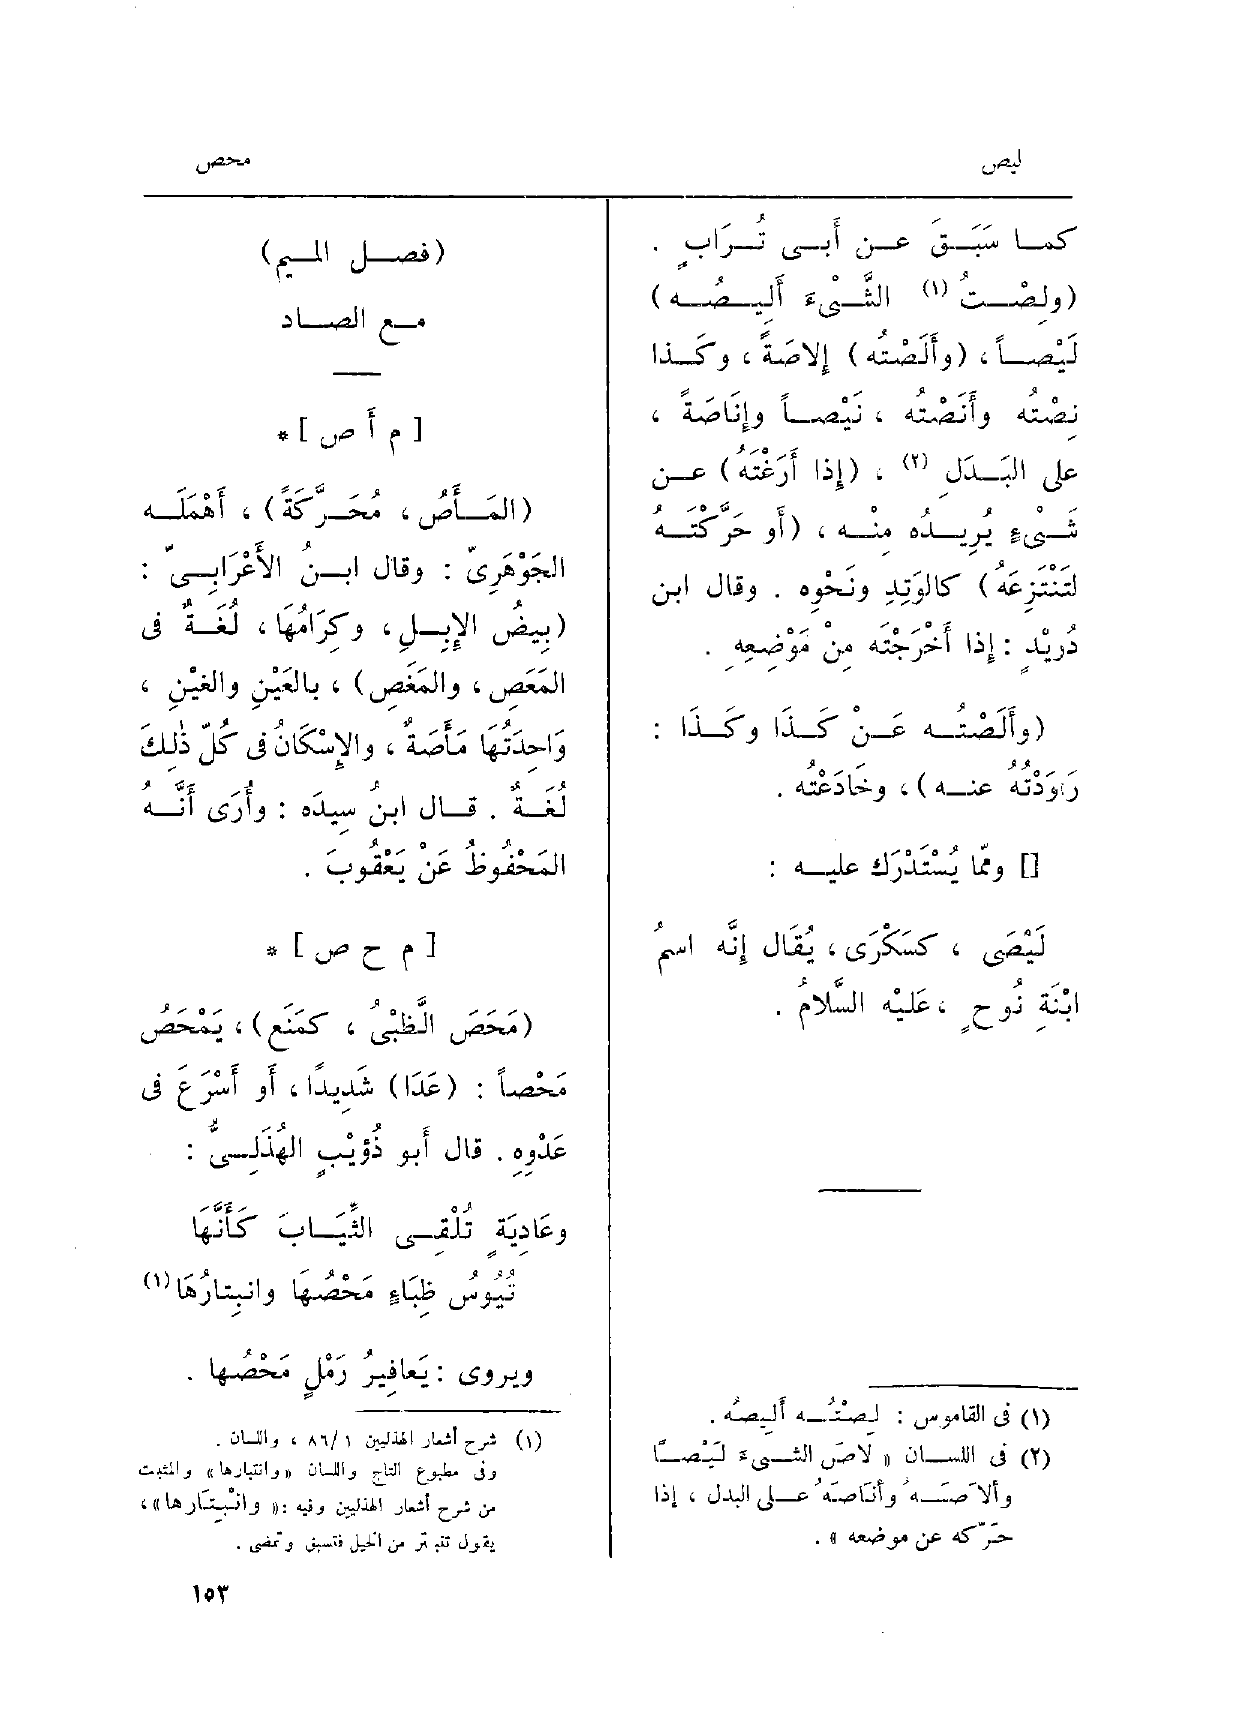 ليص
محص
كما سَبَقَ عن أَبى تُرَابٍ .
(ولِصْتُ (١) الشَّىْءَ أَلِيصُه)
لَيْصاً ، (وأَلَصْتُه) إِلاصَةً ، وكذا
نِصْتُه وأَنَصْتُه ، نَيْصاً وإِنَاصَةً ،
على البَدَلِ (٢) ، (إِذا أَرَغْتَهُ) عن
شىْءٍ يُرِيدُه مِنْه ، (أَو حَرَّكْتَهُ
لتَنْتَزِعَهُ) كالوَتِدِ ونَحْوِه . وقال ابن
دُرَيْدٍ : إِذا أَخْرَجْتَه مِنْ مَوْضِعِهِ .
(وأَلَصْتُه عَنْ كَذَا وكَذَا :
رَاوَدْتُهُ عنه) ، وخَادَعْتُه .
[] وممّا يُسْتَدْرَك عليه :
لَيْصَى ، كسَكْرَى ، يُقَال إِنَّه اسمُ
ابْنَةِ نُوحٍ ، عَلَيْه السَّلامُ .
(١) فى القاموس : لِصْتُه أَلِيصُه .
(٢) فى اللسان « لاصَ الشىءَ لَيْصًا
وألاصَه وأَنَاصَه على البدل ، إذا
حَرّكه عن موضعه » .
(فصل الميم)
مع الصاد
[ م أ ص ] *
(المَأَصُ ، مُحَرَّكَةً) ، أَهْمَلَه
الجَوْهَرِىّ : وقال ابنُ الأَعْرَابِىّ :
(بِيضُ الإِبِلِ ، وكِرَامُهَا ، لُغَةٌ فى
المَعَصِ ، والمَغَصِ) ، بالعَيْنِ والغَيْنِ ،
وَاحِدَتُهَا مَأَصَةٌ ، والإِسْكَانُ فى كُلّ ذٰلِكَ
لُغَةٌ . قال ابنُ سِيدَه : وأُرَى أَنَّهُ
المَحْفُوظُ عَنْ يَعْقُوبَ .
[ م ح ص ] *
(مَحَصَ الظَّبْىُ ، كمَنَع) ، يَمْحَصُ
مَحْصاً : (عَدَا) شَدِيدًا ، أَو أَسْرَعَ فى
عَدْوِهِ . قال أَبو ذُؤَيْبٍ الهُذَلِىُّ :
وعَادِيَةٍ تُلْقِى الثِّيَابَ كَأَنَّهَا
تُيُوسُ ظِبَاءٍ مَحْصُهَا وانبِتارُهَا (١)
ويروى : يَعافِيرُ رَمْلٍ مَحْصُها .
(١) شرح أشعار الهذليين ١ /٨٦ ، واللسان .
وفى مطبوع التاج واللسان «وانتبارها» والمثبت
من شرح أشعار الهذليين وفيه : « وانْبِتَارها » ،
يقول تنبتر من الخيل فتسبق وتمضى .
١٥٣